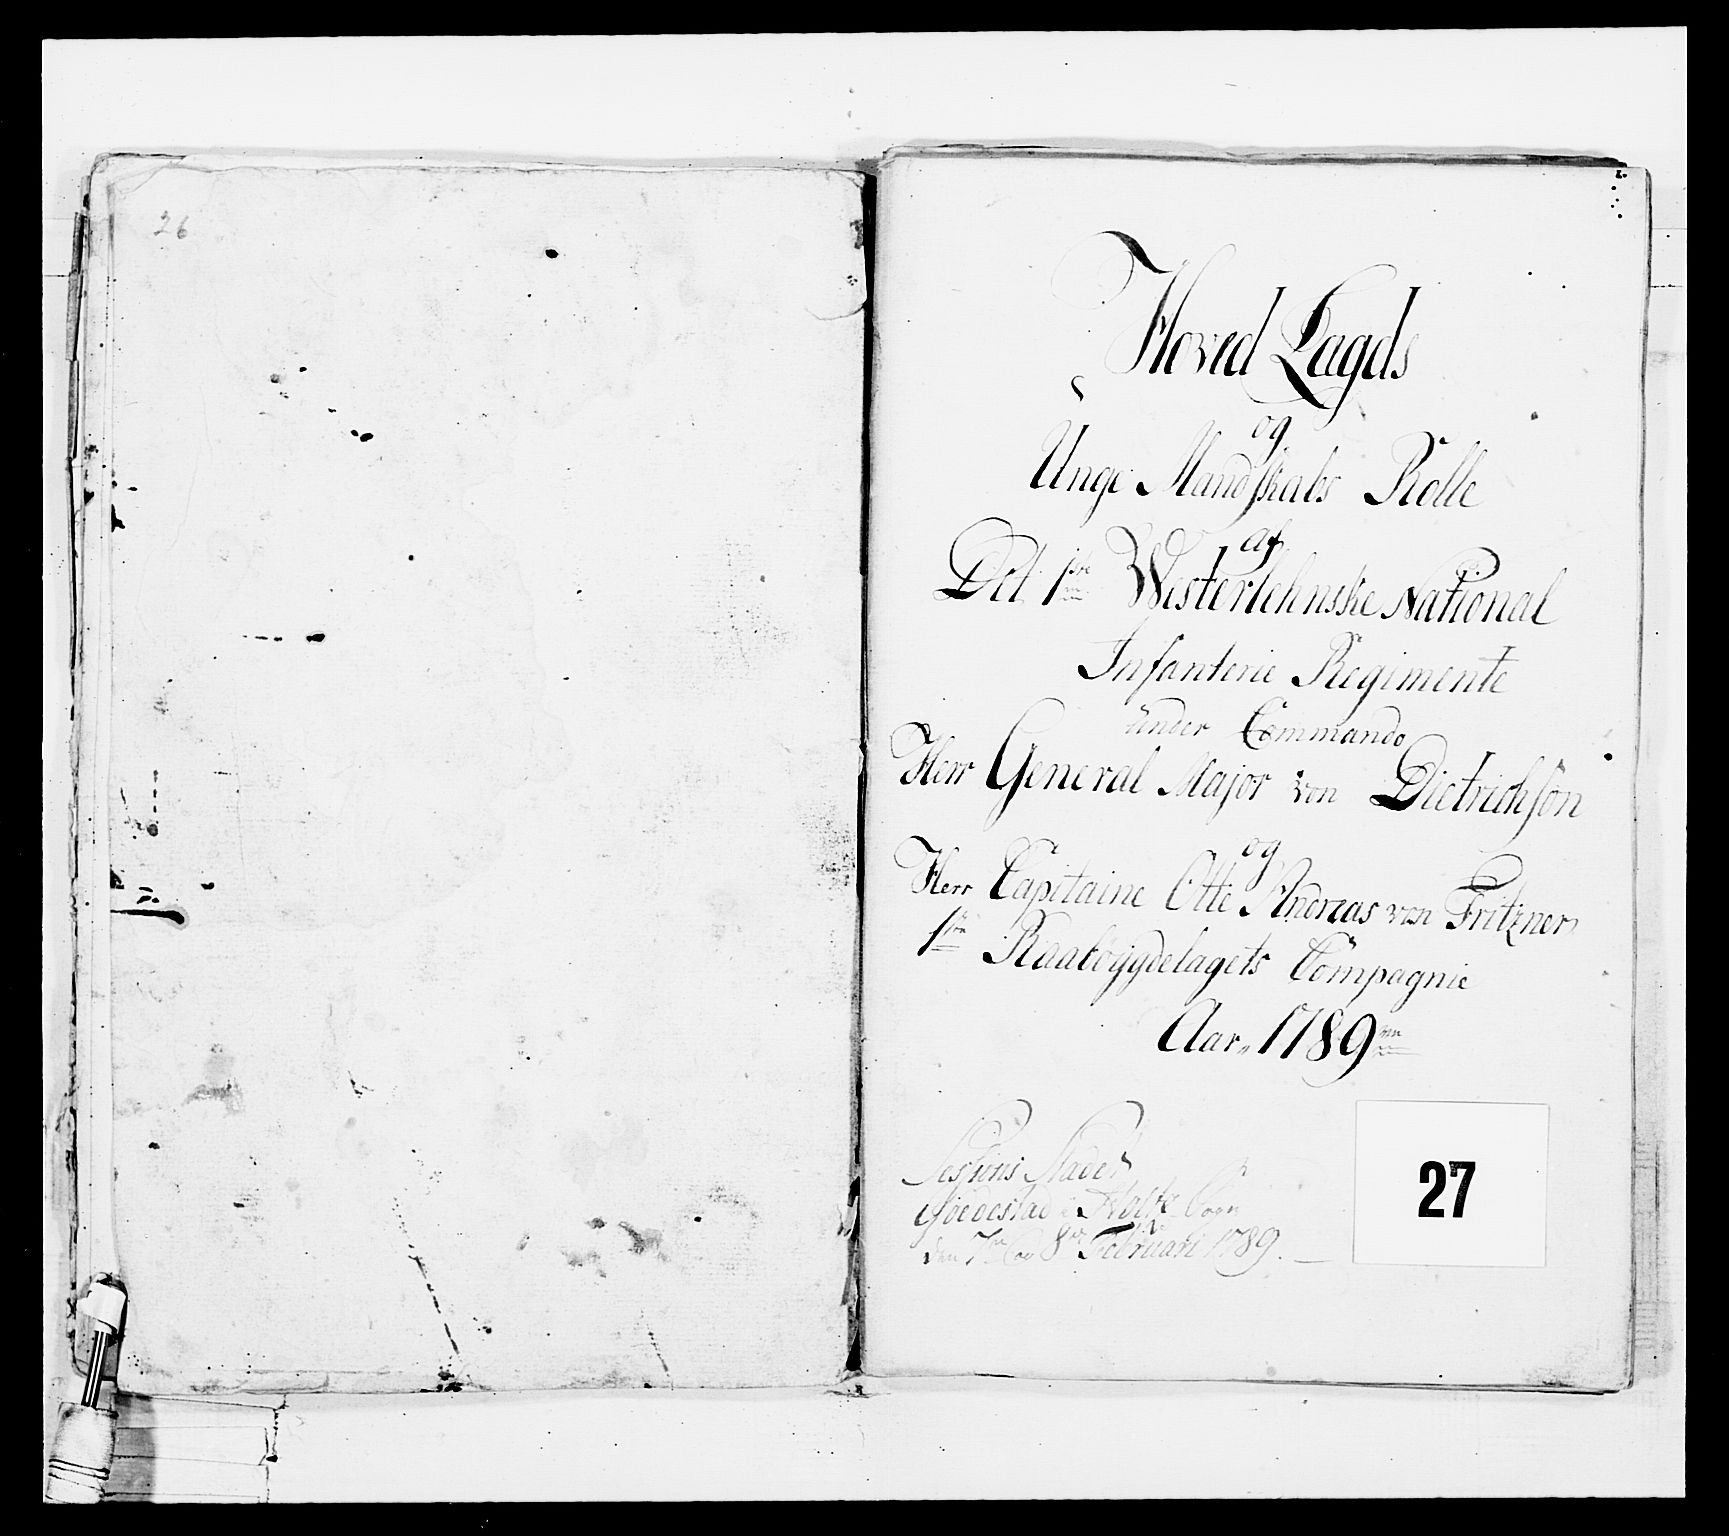 26
Hoved Lægds
og
Unge Mandskabs Rolle
af
Det 1ste Westerlehnske National
Infanterie Regimente
under Commando
Herr General Major von Dietrichson
og
Herr Capitaine Otte Andreas von Fritzner
1ste Raabøygdelagets Compagnie
Aar 1789
Sessions Stædet
den 7de og 8de Februari 1789.
27